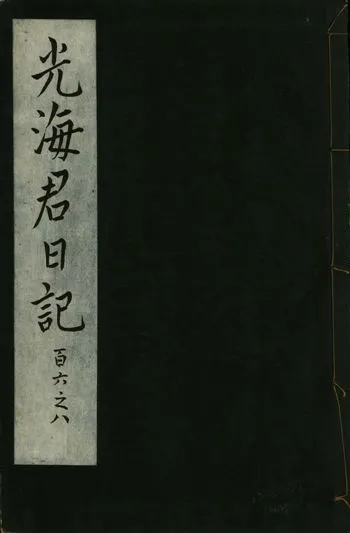 光海君日記 百六之八